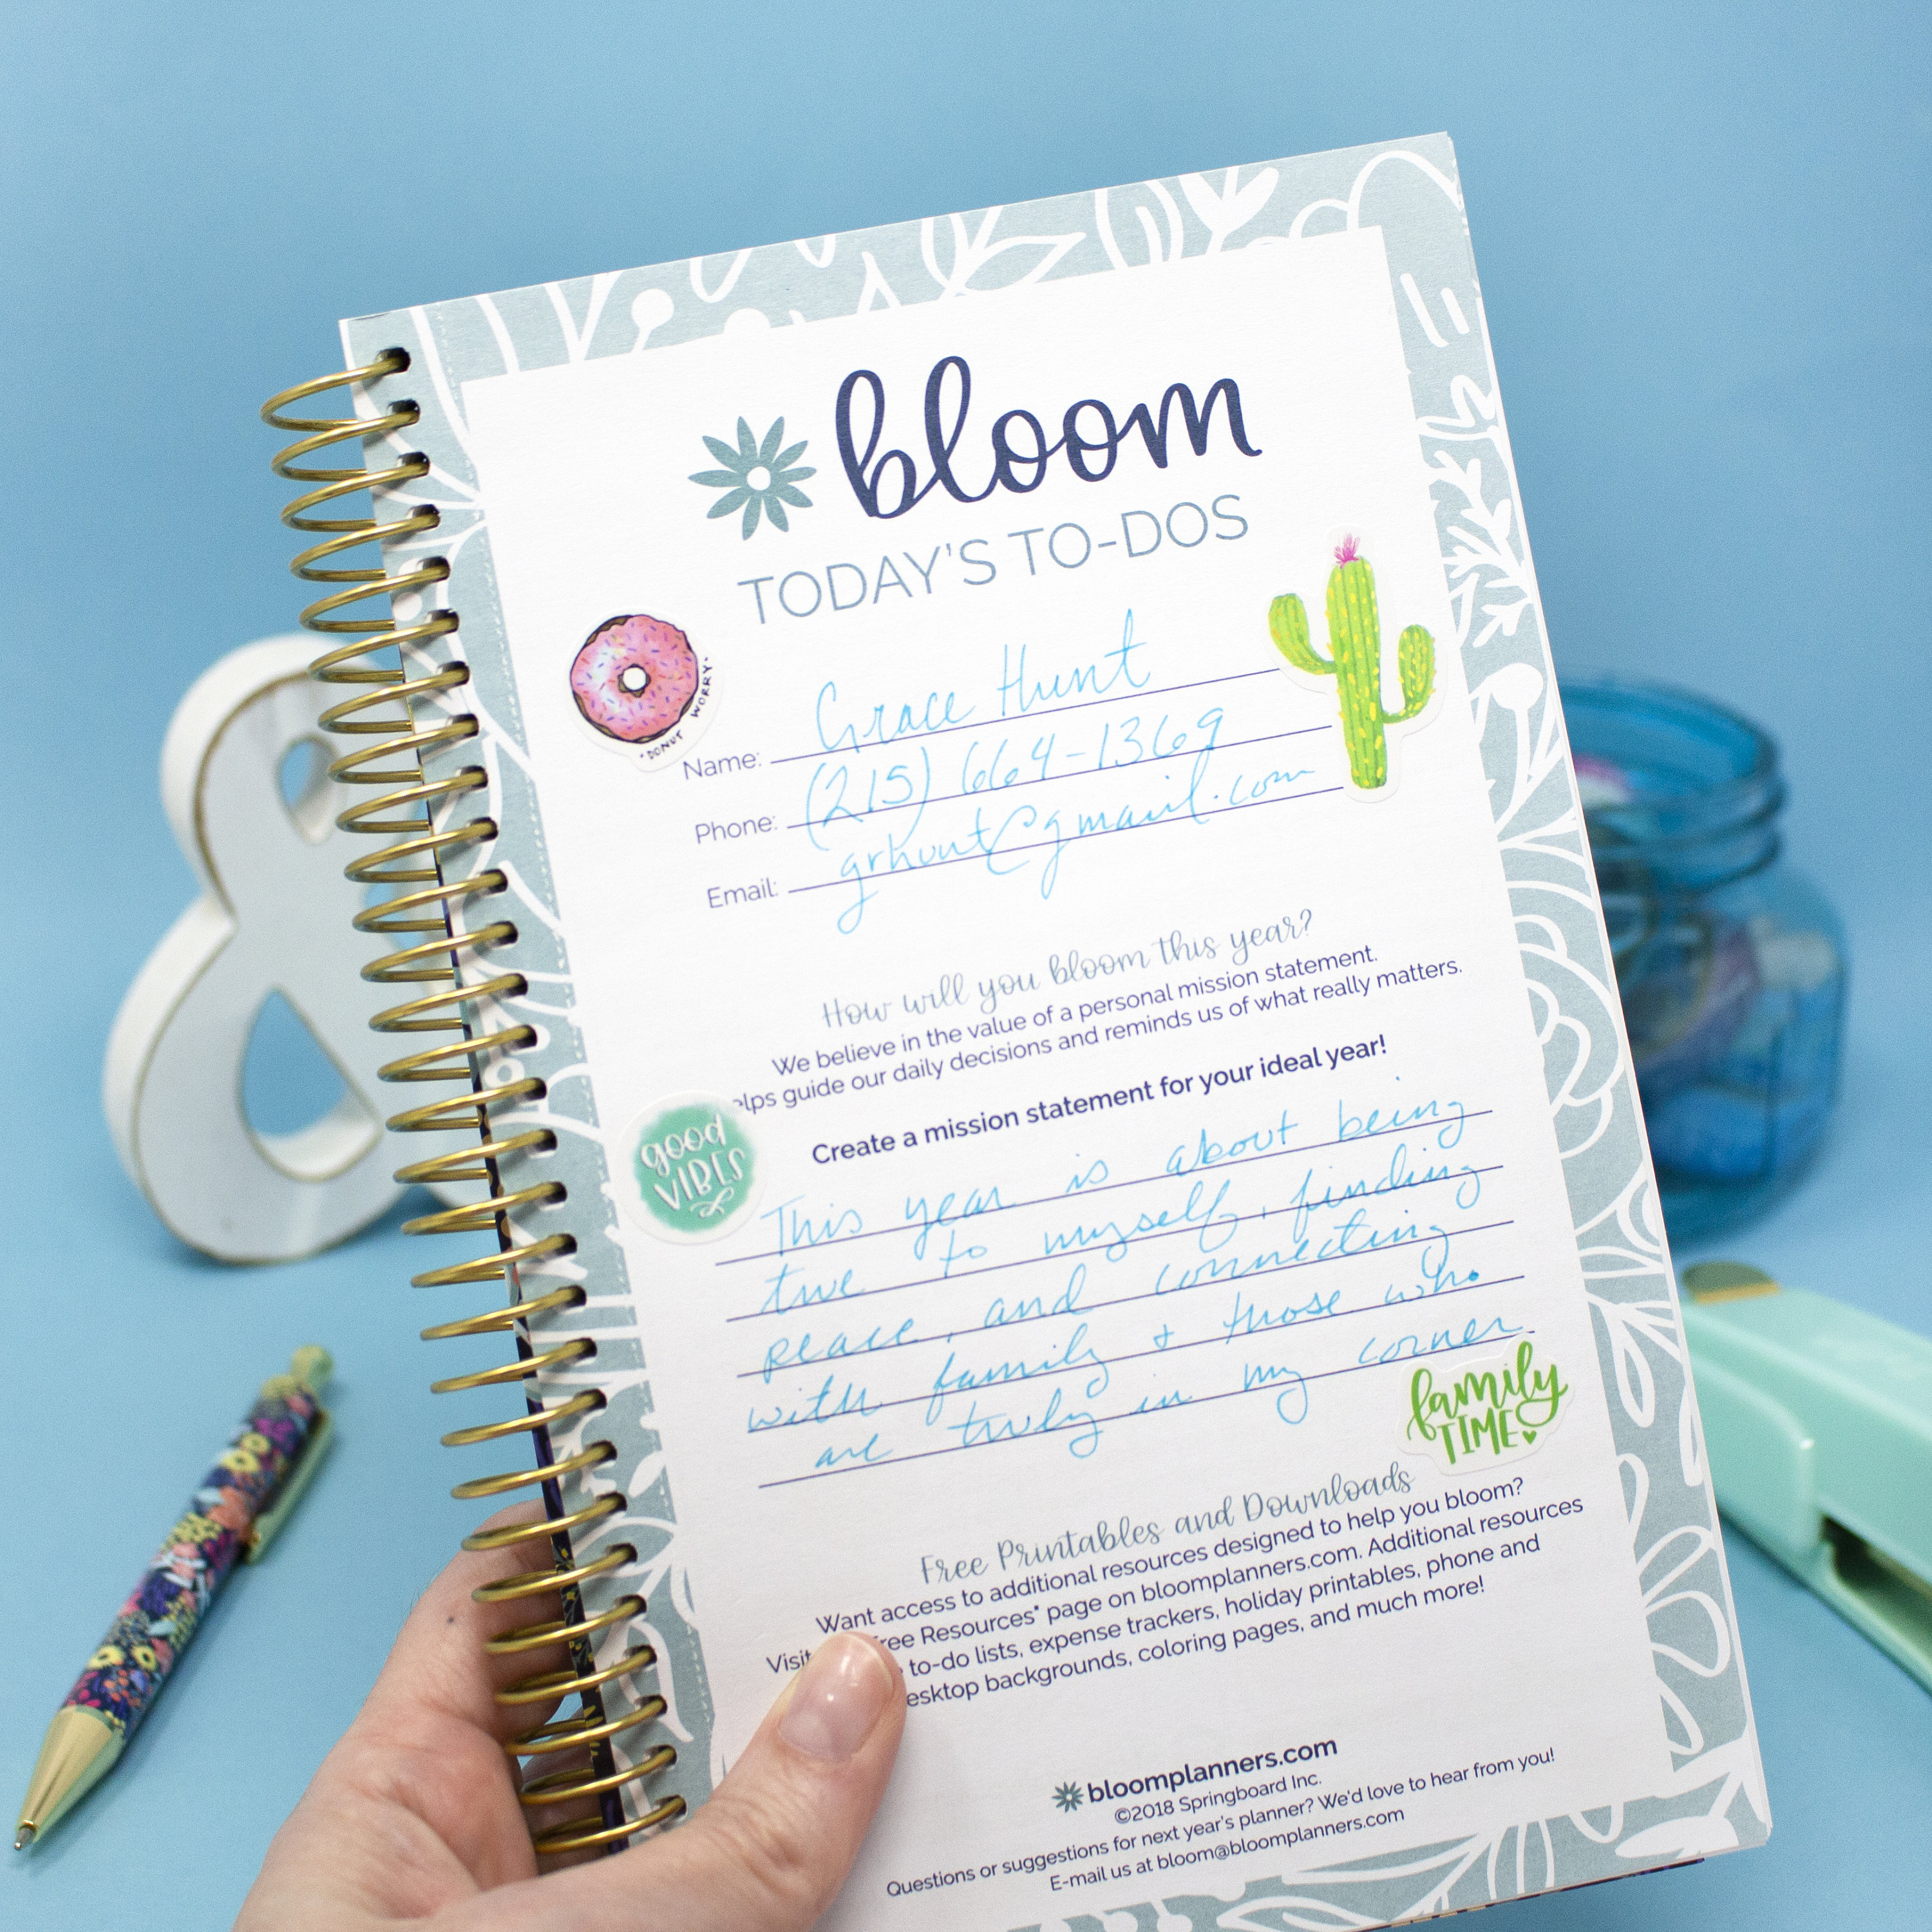 bloom
TODAY'S TO-DOS
"DONUT WORRY"
Name: Grace Hunt
Phone: (215) 664-1369
Email: grhunt@gmail.com
How will you bloom this year?
We believe in the value of a personal mission statement.
elps guide our daily decisions and reminds us of what really matters.
Create a mission statement for your ideal year!
good
VIBES
This year is about being
true to myself, finding
peace, and connecting
with family & those who
are truly in my corner
family
TIME
Free Printables and Downloads
Want access to additional resources designed to help you bloom?
Visit ree Resources" page on bloomplanners.com. Additional resources
to-do lists, expense trackers, holiday printables, phone and
esktop backgrounds, coloring pages, and much more!
bloomplanners.com
©2018 Springboard Inc.
Questions or suggestions for next year's planner? We'd love to hear from you!
E-mail us at bloom@bloomplanners.com